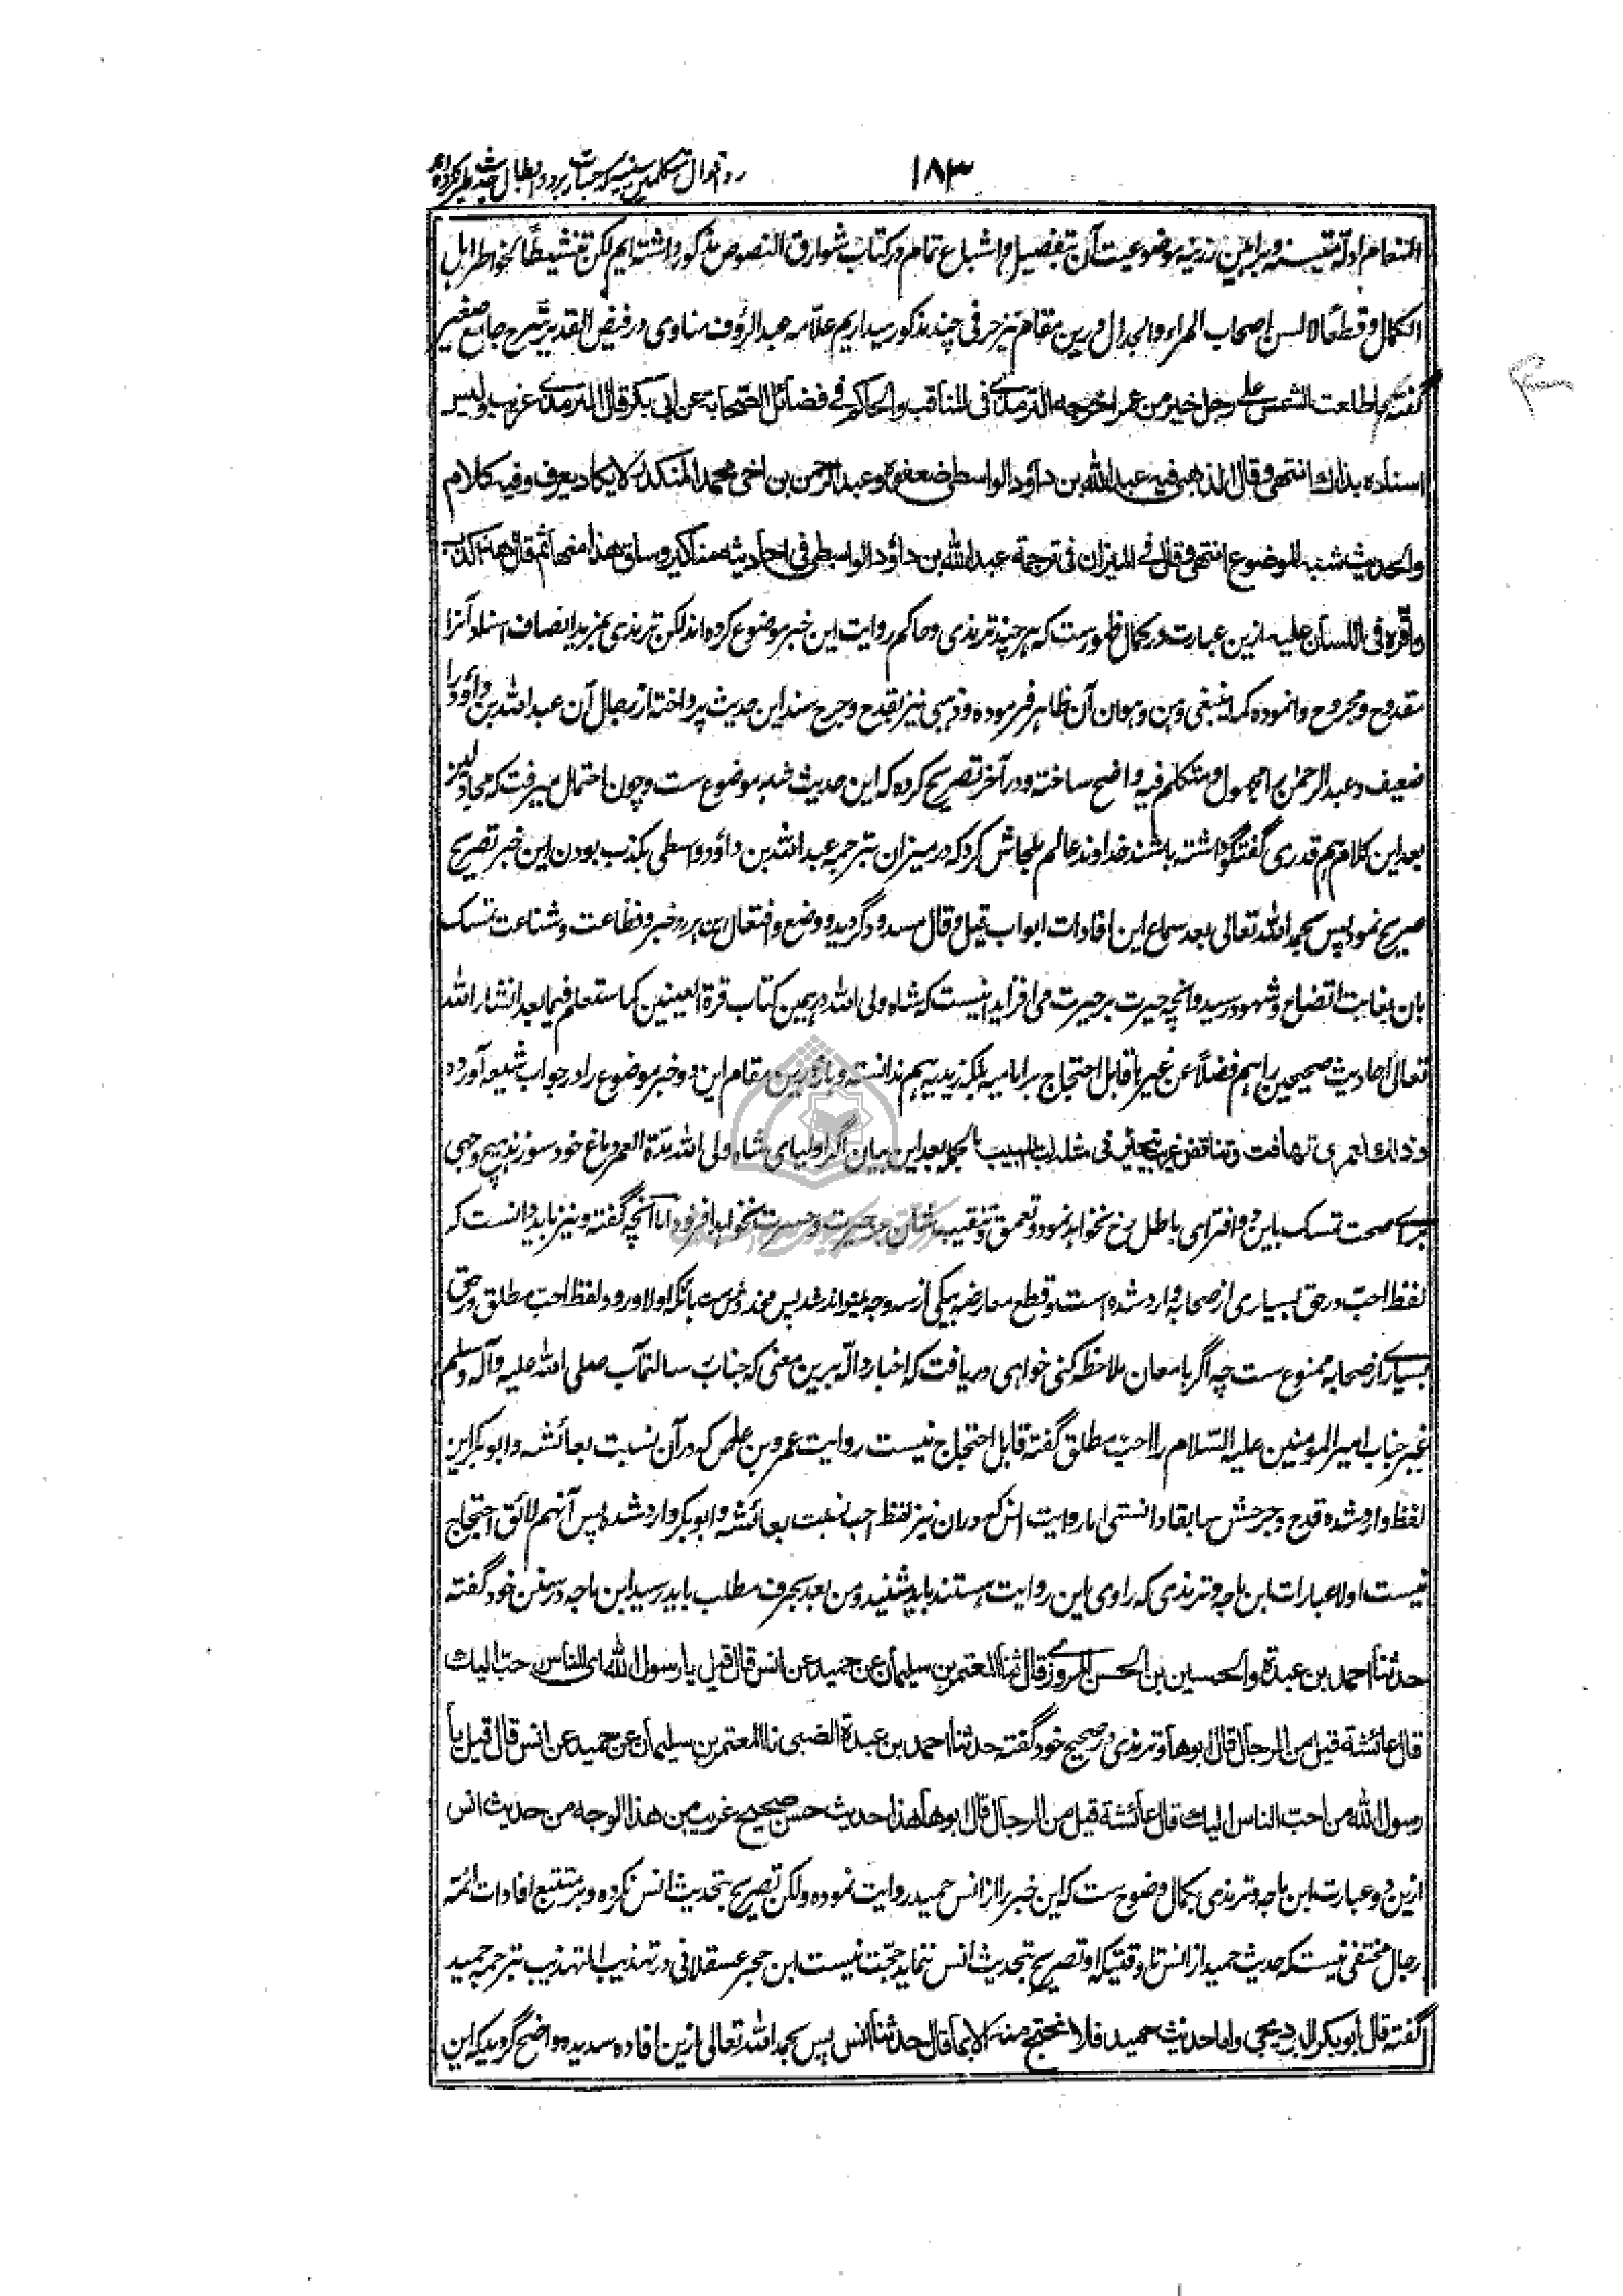 ۱۸۳
رد اقوال متکلمین سنیه که جسارت بر رد و ابطال حدیث طیر کرده‌اند
ادلّهٔ متینه و براهین رزینه موضوعیت آن بتفصیل و اشباع تمام در کتاب شوارق النصوص مذکور داشته ایم لکن تنشیطًا لخواطر اهل
الکمال و قطعًا لالسن اصحاب المراء والجدال درین مقام نیز حرفی چند مذکور میداریم علّامه عبد الرؤف مناوی در فیض القدیر شرح جامع صغیر
گفته ما طلعت الشمس علی رجل خیر من عمر اخرجه الترمذی فی المناقب والحاکم فی فضائل الصّحابة عن ابی بکر قال الترمذی غریب ولیس
اسناده بذاك انتهی وقال الذهبی فیه عبد الله بن داؤد الواسطی ضعفوه وعبد الرحمن بن اخی محمد المنکدر لا یکاد یعرف وفیه کلام
والحدیث شبه الموضوع انتهی وقال فی المیزان فی ترجمة عبد الله بن داؤد الواسطی فی احادیثه مناکیر وساق هذا منها ثم قال هذا کذب
واقره فی اللسان علیه ازین عبارت در کمال ظهورست که هر چند ترمذی و حاکم روایت این خبر موضوع کرده اند لکن ترمذی بمزید انصاف اسناد آنرا
مقدوح و مجروح وانموده کما ینبغی وهن و هوان آن ظاهر فرموده و ذهبی نیز بقدح و جرح سند این حدیث پرداخته از رجال آن عبد الله بن داؤد را
ضعیف و عبد الرحمٰن را مجهول و متکلم فیه واضح ساخته و در آخر تصریح کرده که این حدیث شبه موضوع ست و چون احتمال میرفت که مجادلین
بعد این کلام هم قدری گفتگو داشته باشند خداوند عالم ملجاش کرد که در میزان بترجمه عبد الله بن داؤد واسطی بکذب بودن این خبر تصریح
صریح نمود پس بحمد الله تعالی بعد سماع این افادات ابواب قیل و قال مسدود گردید و وضع و افتعال این هر دو خبر و فظاعت و شناعت تمسک
بان بغایت اتضاح و شهود رسید و آنچه حیرت بر حیرت می افزاید اینست که شاه ولی الله در همین کتاب قرة العینین کما ستعلم فیما بعد انشاء الله
تعالی احادیث صحیحین را هم فضلًا عن غیرها قابل احتجاج بر امامیه بلکه زیدیه هم ندانسته و باز درین مقام این دو خبر موضوع را در جواب شیعه آورده
وذلك لعمری تهافت و تناقض غریب فی مثله اللبیب بالجمله بعد این بیان اگر اولیای شاه ولی الله مدّة العمر دماغ خود سوزند هیچ وجهی
برای صحت تمسک باین دو افترای باطل رخ نخواهد نمود و تعمق و تنقیب شان جز حیرت و حسرت نخواهد افزود اما آنچه گفته و نیز باید دانست که
لفظ احبّ در حق بسیاری از صحابه وارد شده است و قطع معارضه بیکی از سه وجه میتواند شد پس مخدوش ست بآنکه اولا ورود لفظ احبّ مطلق در حق
بسیاری از صحابه ممنوع ست چه اگر بامعان ملاحظه کنی خواهی دریافت که اخبار دالّه برین معنی که جناب رسالتمآب صلی الله علیه وآله وسلم
غیر جناب امیر المومنین علیه السّلام را احبّ مطلق گفته قابل احتجاج نیست روایت عمرو بن عاص که در آن نسبت بعائشه و ابو بکر این
لفظ وارد شده قدح و جرحش سابقا دانستی اما روایت انس که دران نیز لفظ احب نسبت بعائشه و ابو بکر وارد شده پس آنهم لائق احتجاج
نیست اولا عبارات ابن ماجه و ترمذی که راوی این روایت هستند باید شنید و من بعد بحرف مطلب باید رسید ابن ماجه در سنن خود گفته
حدثنا احمد بن عبدة والحسین بن الحسن المروزی قال ثنا المعتمر بن سلیمان عن حمید عن انس قال قیل یا رسول الله ای الناس احبّ الیك
قال عائشة قیل من الرجال قال ابوها و ترمذی در صحیح خود گفته حدثنا احمد بن عبدة الضبی نا المعتمر بن سلیمان عن حمید عن انس قال قیل یا
رسول الله من احبّ الناس الیك قال عائشة قیل من الرجال قال ابوها هذا حدیث حسن صحیح غریب من هذا الوجه من حدیث انس
ازین دو عبارت ابن ماجه و ترمذی بکمال وضوح ست که این خبر را از انس حمید روایت نموده و لکن تصریح بتحدیث انس نکرده و بر متتبع افادات ائمّه
رجال مختفی نیست که حدیث حمید از انس تا وقتیکه او تصریح بتحدیث انس ننماید حجّت نیست ابن حجر عسقلانی در تهذیب التهذیب بترجمه حمید
گفته قال ابو بکر البردیجی واما حدیث حمید فلا نحتج منه الا بما قال حدثنا انس پس بحمد الله تعالی ازین افاده سدیده واضح گردید که این